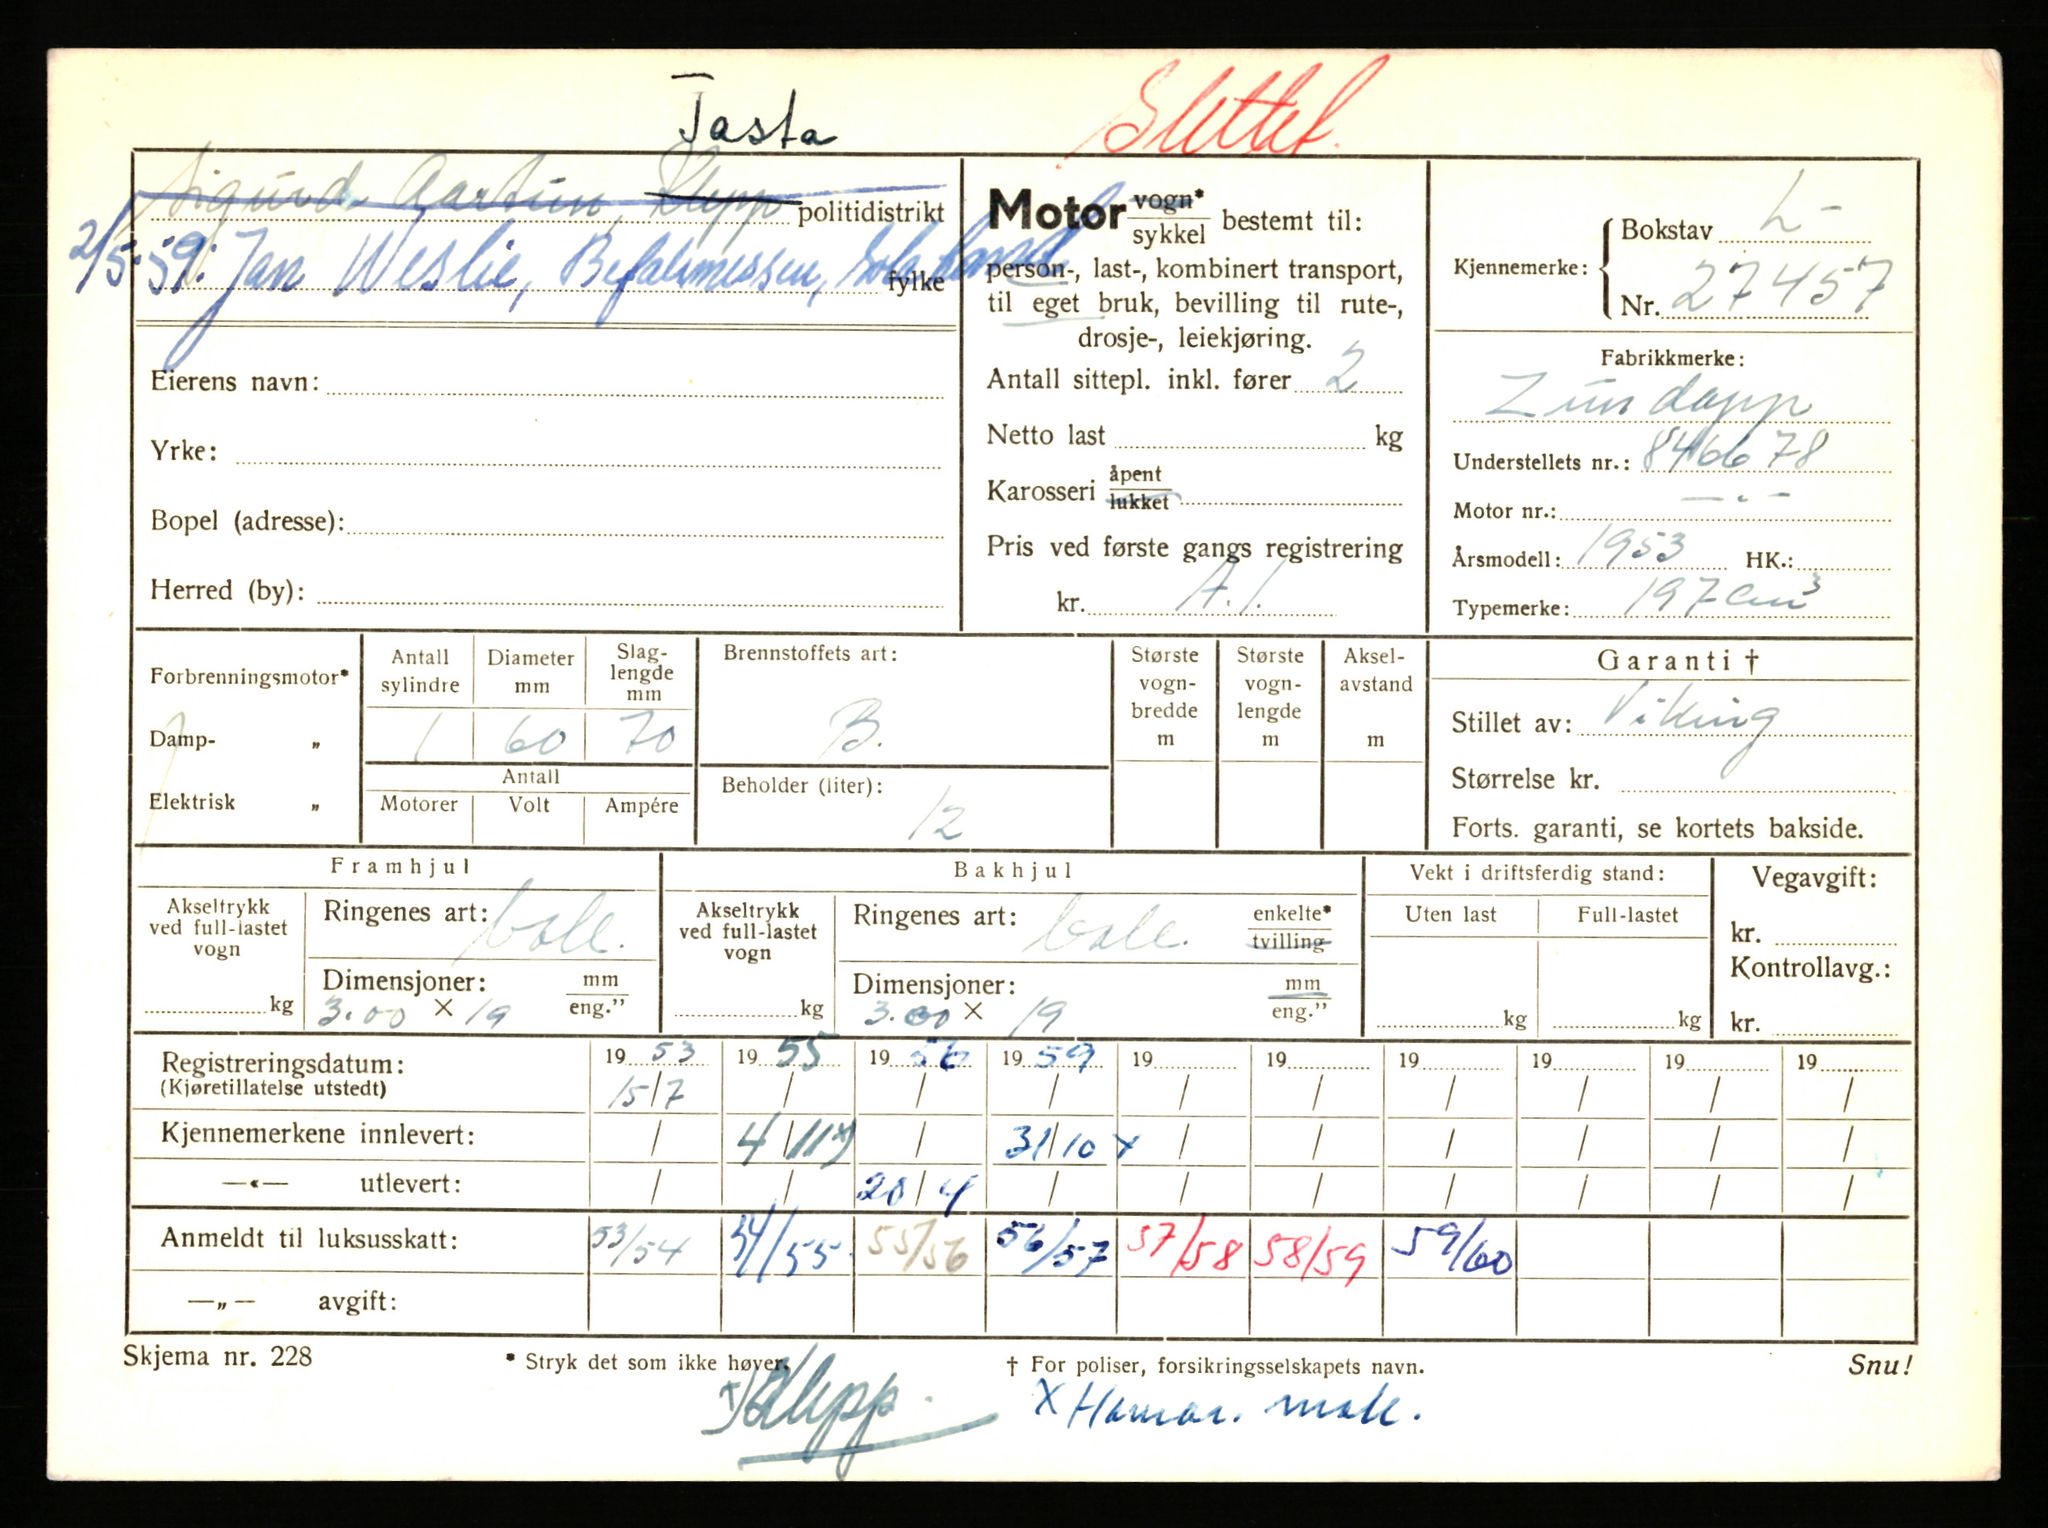 Tasta
Slettet.
Sigurd Aarsun, Klepp politidistrikt
2/5-59: Jan Weslie, Befalsmessen, Sola fylke
Motor vogn* / sykkel bestemt til:
person-, last-, kombinert transport,
til eget bruk, bevilling til rute-,
drosje-, leiekjøring.
Antall sittepl. inkl. fører 2
Netto last kg
Karosseri åpent / lukket
Pris ved første gangs registrering
kr. A.1.
Kjennemerke: Bokstav L-
Nr. 27457
Fabrikkmerke:
Zündapp
Understellets nr.: 846678
Motor nr.: — . —
Årsmodell: 1953 HK.:
Typemerke: 197 cm³
Eierens navn:
Yrke:
Bopel (adresse):
Herred (by):
Forbrenningsmotor*
Damp- „
Elektrisk „
Antall sylindre 1
Diameter mm 60
Slaglengde mm 70
Antall
Motorer Volt Ampére
Brennstoffets art:
B.
Beholder (liter):
12
Største vognbredde m
Største vognlengde m
Akselavstand m
Garanti †
Stillet av: Viking
Størrelse kr.
Forts. garanti, se kortets bakside.
Framhjul
Akseltrykk ved full-lastet vogn kg
Ringenes art:
Dimensjoner: mm / eng.”
3.00 × 19
Bakhjul
Akseltrykk ved full-lastet vogn kg
Ringenes art: enkelte* / tvilling
Dimensjoner: mm / eng.”
3.00 × 19
Vekt i driftsferdig stand:
Uten last Full-lastet
kg kg
Vegavgift:
kr.
Kontrollavg.:
kr.
Registreringsdatum: 19 53 19 55 19 56 19 59 19 19 19 19 19 19
(Kjøretillatelse utstedt) 15/7 / / / / / / / / /
Kjennemerkene innlevert: / 4/11 x) / 31/10 x / / / / / /
—«— utlevert: / / 20/4 / / / / / / /
Anmeldt til luksusskatt: 53/54 54/55 55/56 56/57 57/58 58/59 59/60
—„— avgift:
Skjema nr. 228 * Stryk det som ikke høver. † For poliser, forsikringsselskapets navn. Snu!
x) Klepp.
x Hamar.